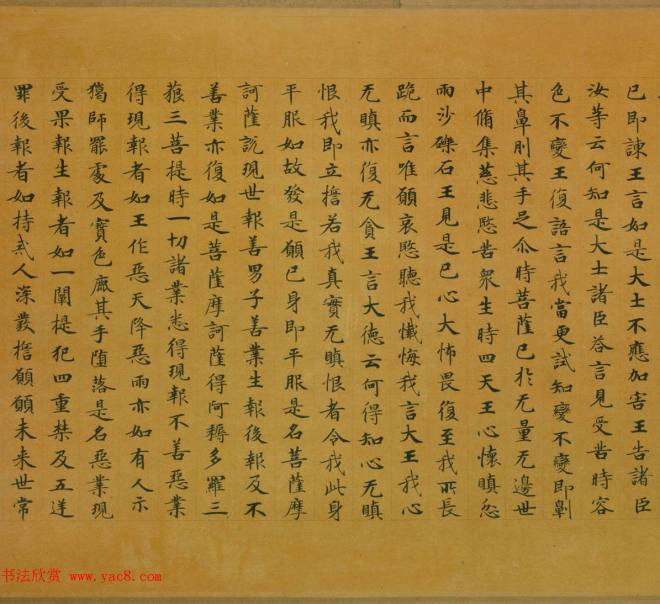 已即諫王言如是大士不應加害王告諸臣
汝等云何知是大士諸臣荅言見受苦時容
色不變王復語言我當更試知變不變即劓
其鼻刖其手足尒時菩薩已於无量无邊世
中脩集慈悲愍苦衆生時四天王心懷瞋忿
雨沙礫石王見是已心大怖畏復至我所長
跪而言唯願哀愍聽我懺悔我言大王我心
无瞋亦復无貪王言大德云何得知心无瞋
恨我即立擔若我真實无瞋恨者令我此身
平服如故發是願已身即平服是名菩薩摩
訶薩說現世報善男子善業生報後報及不
善業亦復如是菩薩摩訶薩得阿耨多羅三
藐三菩提時一切諸業悉得現報不善惡業
得現報者如王作惡天降惡雨亦如有人示
獦師羆處及寶色廌其手墮落是名惡業現
受果報生報者如一闡提犯四重禁及五逆
罪後報者如持戒人深發擔願願未來世常
书法欣赏 www.yac8.com